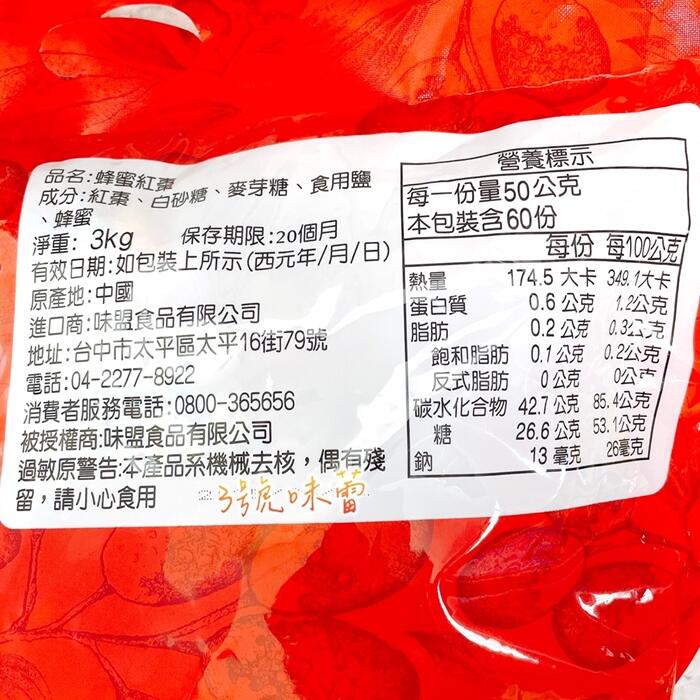 品名:蜂蜜紅棗
成分:紅棗、白砂糖、麥芽糖、食用鹽
、蜂蜜
淨重: 3kg 保存期限:20個月
有效日期:如包裝上所示(西元年/月/日)
原產地:中國
進口商:味盟食品有限公司
地址:台中市太平區太平16街79號
電話:04-2277-8922
消費者服務電話:0800-365656
被授權商:味盟食品有限公司
過敏原警告:本產品系機械去核,偶有殘
留,請小心食用
3號味蕾
營養標示
每一份量50公克
本包裝含60份
每份 每100公克
熱量 174.5 大卡 349.1大卡
蛋白質 0.6 公克 1.2公克
脂肪 0.2 公克 0.3公克
飽和脂肪 0.1公克 0.2公克
反式脂肪 0公克 0公克
碳水化合物 42.7公克 85.4公克
糖 26.6公克 53.1公克
鈉 13 毫克 26毫克